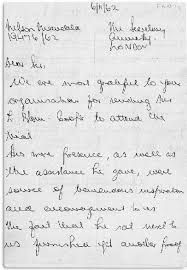 6/11/62
Nelson Mandela
The Secretary
19476/62
Amnesty
LONDON
Dear Sir,
We are most grateful to your
organisation for sending Mr
L. Blom-Cooper to attend the
trial
His mere presence, as well as
the assistance he gave, were
source of tremendous inspiration
and encouragement to us
The fact that he sat next to
us furnished yet another proof